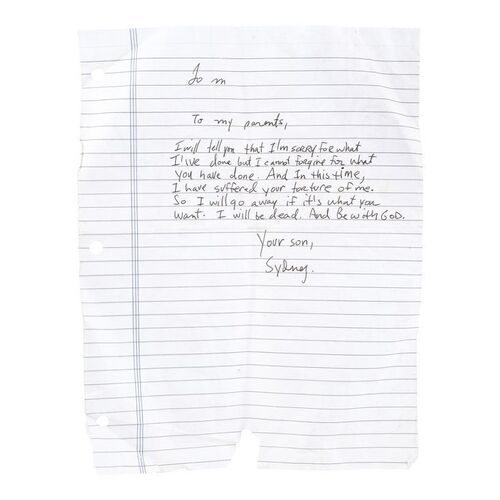 To m
To my parents,
I will tell you that I'm sorry for what
I'lve done but I cannot forgive for what
you have done. And In this time,
I have suffered your torture of me.
So I will go away if it's what you
want. I will be dead. And Be with GOD.
Your son,
Sydney.